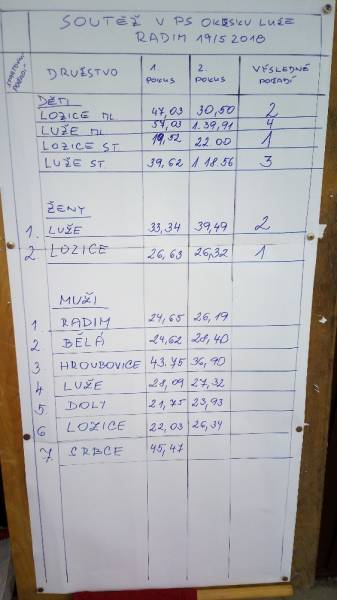 SOUTĚŽ V PS OKRSKU LUŽE
RADIM 19/5 2018
STARTOVNÍ POŘADÍ DRUŽSTVO 1. POKUS 2. POKUS VÝSLEDNÉ POŘADÍ
DĚTI
LOZICE ML 47,03 30,50 2
LUŽE ML 57,03 1.39,91 4
LOZICE ST 19,52 22.00 1
LUŽE ST. 39,62 1.18.56 3
ŽENY
1. LUŽE 33,34 39,49 2
2. LOZICE 26,63 26,32 1
MUŽI
1 RADIM 24,65 26,19
2 BĚLÁ 24,62 28,40
3 HROUBOVICE 43.75 36,90
4 LUŽE 28,09 27,32
5 DOLY 21,75 23,93
6 LOZICE 22,03 26,34
7 SRBCE 45,47